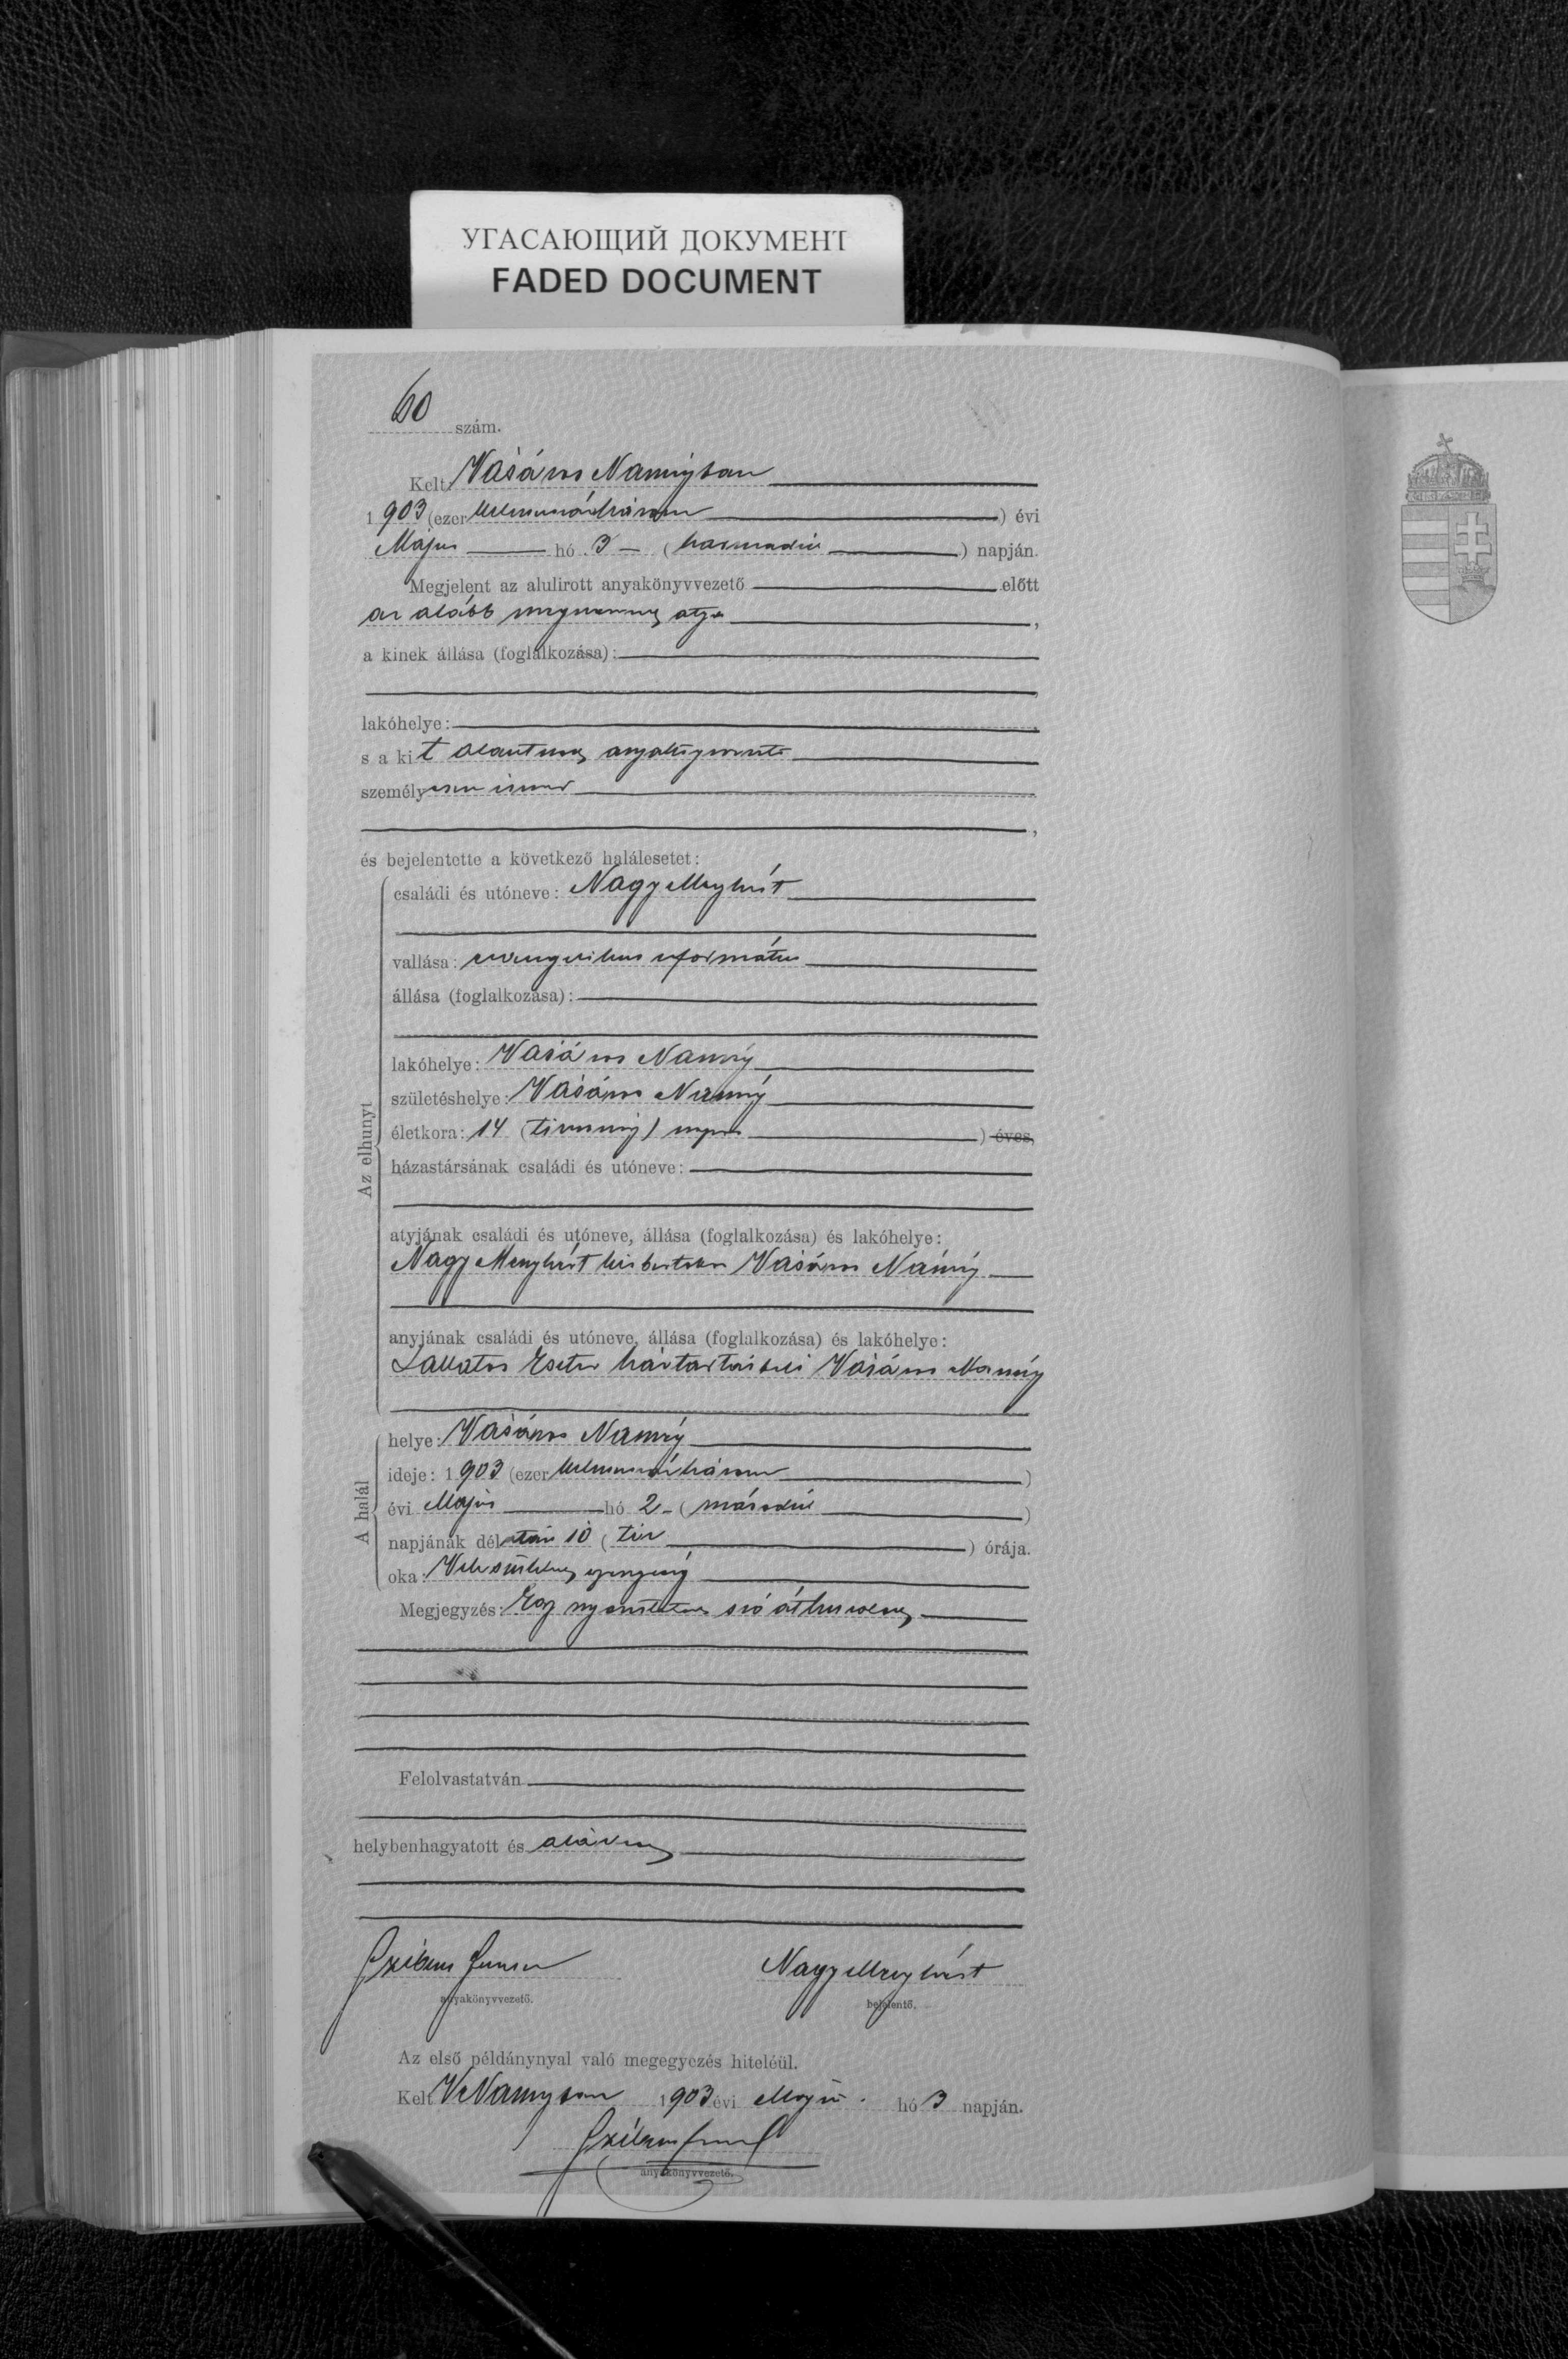 УГАСАЮЩИЙ ДОКУМЕНТ
FADED DOCUMENT
60 szám.
Kelt Vásáros Naményban
1903 (ezer kilenczszázhárom) évi
Május hó 3 (harmadik) napján.
Megjelent az alulirott anyakönyvvezető előtt
az alább megnevezett atya,
a kinek állása (foglalkozása):
lakóhelye:
s a kit alant
személyesen ismer
és bejelentette a következő halálesetet:
Az elhunyt
családi és utóneve: Nagy Menyhért
vallása: evangelikus református
állása (foglalkozása):
lakóhelye: Vásáros Namény
születéshelye: Vásáros Namény
életkora: 14 (tizennégy) napos ) éves,
házastársának családi és utóneve:
atyjának családi és utóneve, állása (foglalkozása) és lakóhelye:
Nagy Menyhért kisbirtokos Vásáros Namény
anyjának családi és utóneve, állása (foglalkozása) és lakóhelye:
Lakatos Eszter háztartásbeli Vásáros Namény
A halál
helye: Vásáros Namény
ideje: 1903 (ezer kilenczszázhárom)
évi Május hó 2 (második)
napjának délután 10 (tíz) órája.
oka: Veleszületett gyengeség
Megjegyzés: Egy nyomtatott szó áthúzva
Felolvastatván
helybenhagyatott és aláírva
anyakönyvvezető.
Nagy Menyhért
bejelentő.
Az első példánynyal való megegyezés hiteléül.
Kelt V Naményban 1903 évi Május hó 3 napján.
anyakönyvvezető.